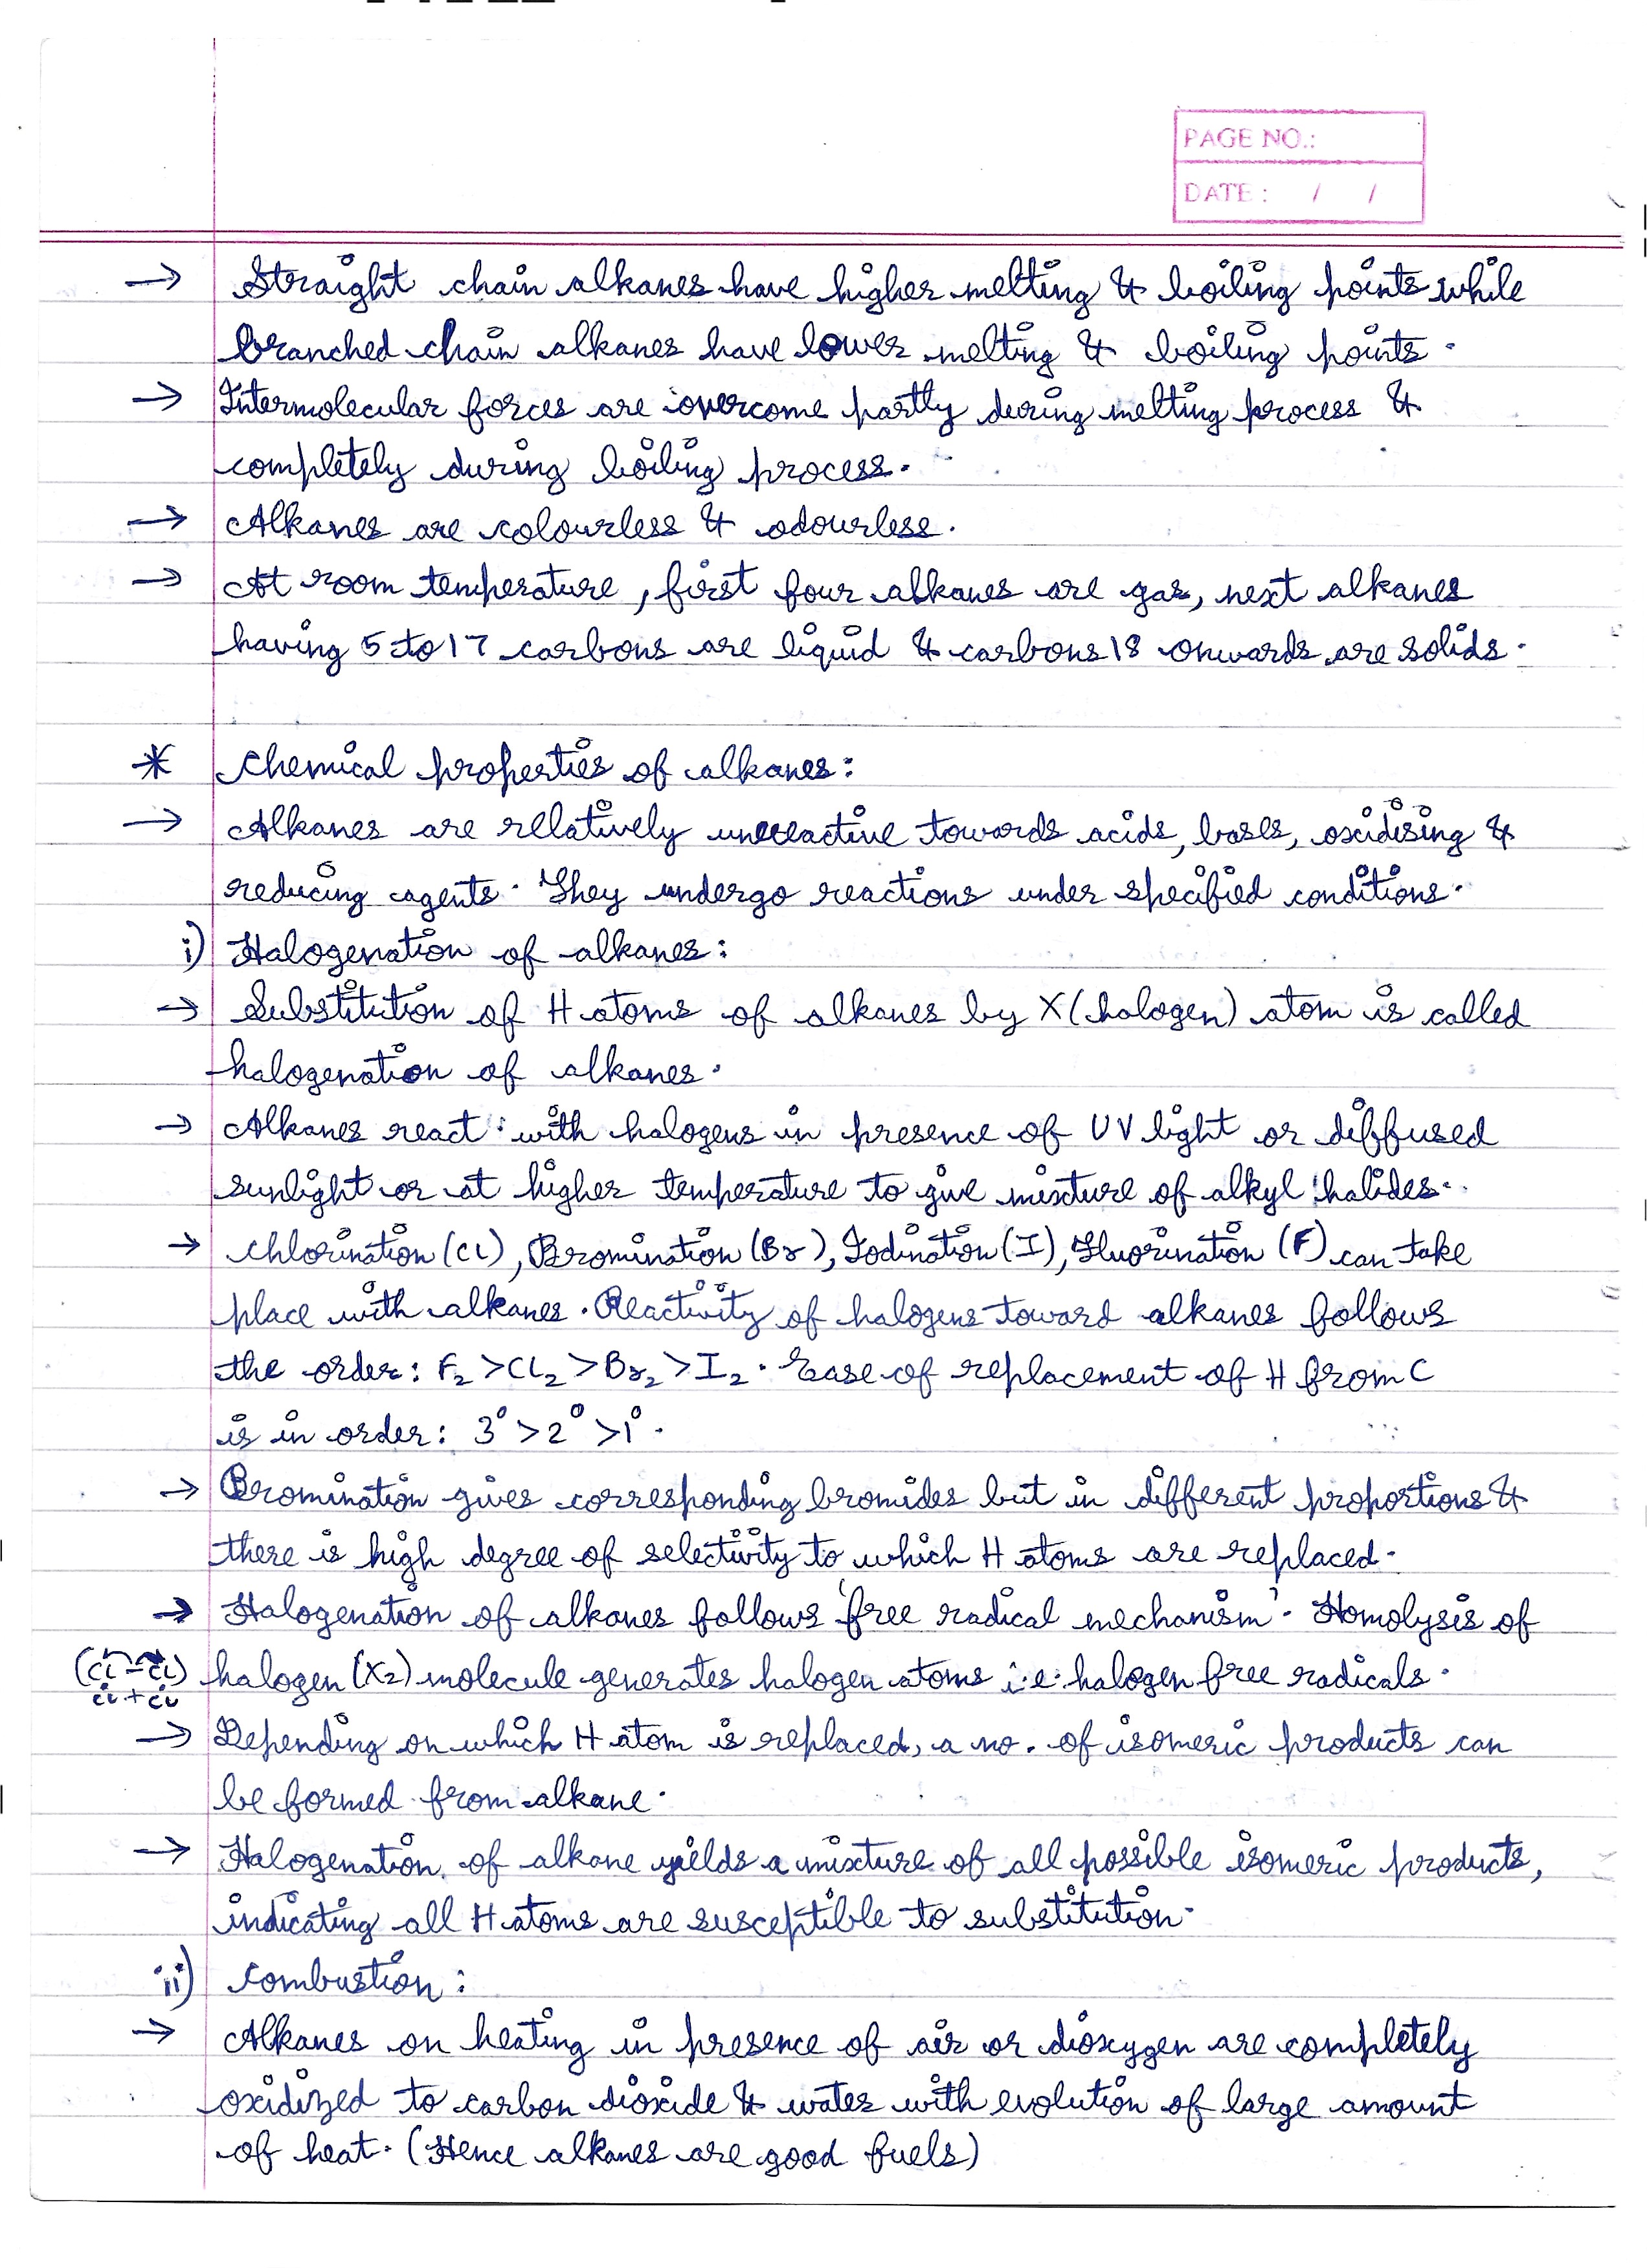 PAGE NO.:
DATE : / /
→ Straight chain alkanes have higher melting & boiling points while
branched chain alkanes have lower melting & boiling points.
→ Intermolecular forces are overcome partly during melting process &
completely during boiling process.
→ Alkanes are colourless & odourless.
→ At room temperature, first four alkanes are gas, next alkanes
having 5 to 17 carbons are liquid & carbons 18 onwards are solids.
* Chemical properties of alkanes:
→ Alkanes are relatively unreactive towards acids, bases, oxidising &
reducing agents. They undergo reactions under specified conditions.
i) Halogenation of alkanes:
→ Substitution of H atoms of alkanes by X (halogen) atom is called
halogenation of alkanes.
→ Alkanes react with halogens in presence of UV light or diffused
sunlight or at higher temperature to give mixture of alkyl halides.
→ Chlorination (Cl), Bromination (Br), Iodination (I), Fluorination (F) can take
place with alkanes. Reactivity of halogens toward alkanes follows
the order: F₂ > Cl₂ > Br₂ > I₂. Ease of replacement of H from C
is in order: 3° > 2° > 1°.
→ Bromination gives corresponding bromides but in different proportions &
there is high degree of selectivity to which H atoms are replaced.
→ Halogenation of alkanes follows 'free radical mechanism'. Homolysis of
(Cl – Cl) halogen (X₂) molecule generates halogen atoms i.e. halogen free radicals.
Ċl + Ċl
→ Depending on which H atom is replaced, a no. of isomeric products can
be formed from alkane.
→ Halogenation of alkane yields a mixture of all possible isomeric products,
indicating all H atoms are susceptible to substitution.
ii) Combustion:
→ Alkanes on heating in presence of air or dioxygen are completely
oxidized to carbon dioxide & water with evolution of large amount
of heat. (Hence alkanes are good fuels)